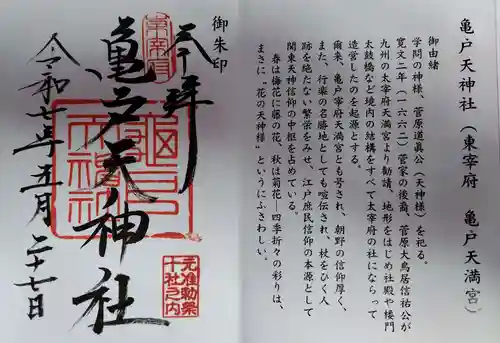 亀戸天神社（東宰府　亀戸天満宮）
御由緒
学問の神様、菅原道真公（天神様）を祀る。
寛文二年（一六六二）菅家の後裔、菅原大鳥居信祐公が
九州の太宰府天満宮より勧請、地形をはじめ社殿や楼門
太鼓橋など境内の結構をすべて太宰府の社にならって
造営したのを起源とする。
爾来、亀戸宰府天満宮とも号され、朝野の信仰厚く、
また、行楽の名勝地としても喧伝され、杖をひく人
跡を絶たない繁栄をみせ、江戸庶民信仰の本源として
関東天神信仰の中枢を占めている。
春は梅花に藤の花、秋は菊花―四季折々の彩りは、
まさに〝花の天神様〟というにふさわしい。
御朱印
奉拝
東宰府
亀戸天神社
亀戸天神社
元准勅祭
十社之内
令和七年五月二十七日